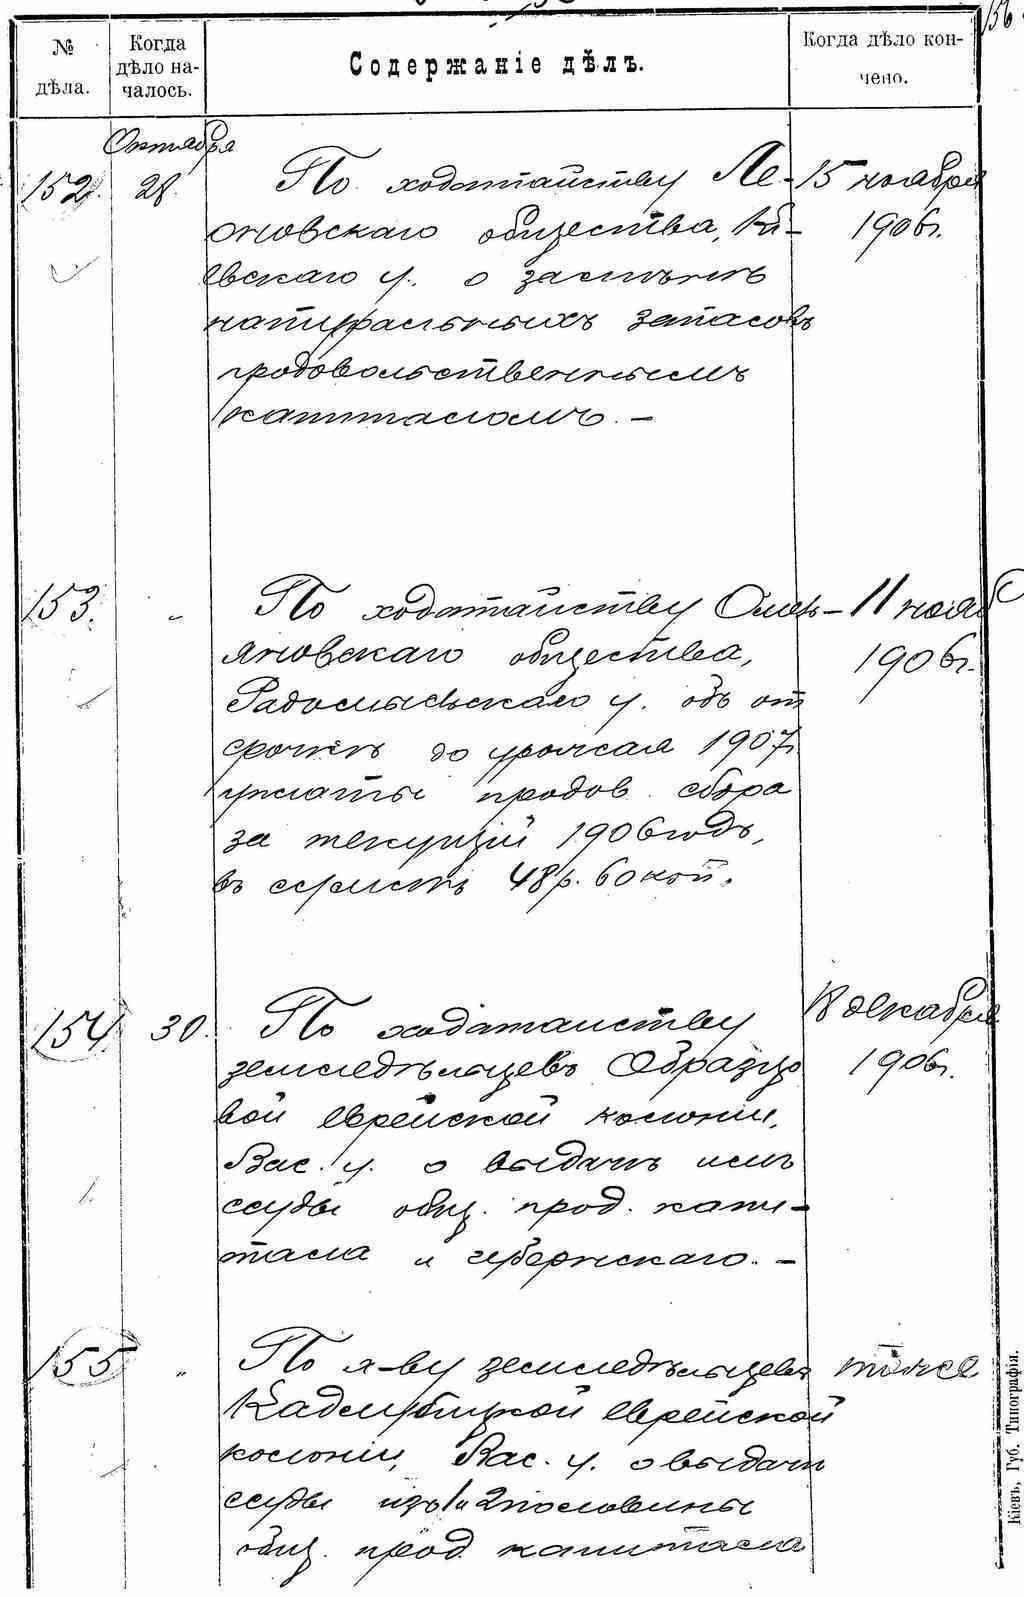 156.
№ дѣла.
Когда дѣло началось.
Содержаніе дѣлъ.
Когда дѣло кончено.
Октября
152. 28. По ходатайству Ле- 15 ноября
оновскаго общества, Кі- 1906г.
евскаго у. о замѣнѣ
натуральныхъ запасовъ
продовольственнымъ
капиталомъ. –
153. " По ходатайству Омель- 11 нояб
яновскаго общества, 1906г.
Радомысльскаго у. объ от
срочкѣ до урожая 1907г.
уплаты продов. сбора
за текущій 1906 годъ,
въ суммѣ 48р. 60 коп.
154. 30. По ходатайству 18 декабря
земледѣльцевъ Образцо 1906г.
вой еврейской колоніи,
Вас. у. о выдачѣ имъ
ссуды общ. прод. капи-
тала и губернскаго. –
155 " По х-ву земледѣльцевъ тоже
Кадлубицкой еврейской
колоніи, Вас. у. о выдачѣ
ссуды изъ 1и 2 половины
общ. прод. капитала
Кіевъ, Губ. Типографія.